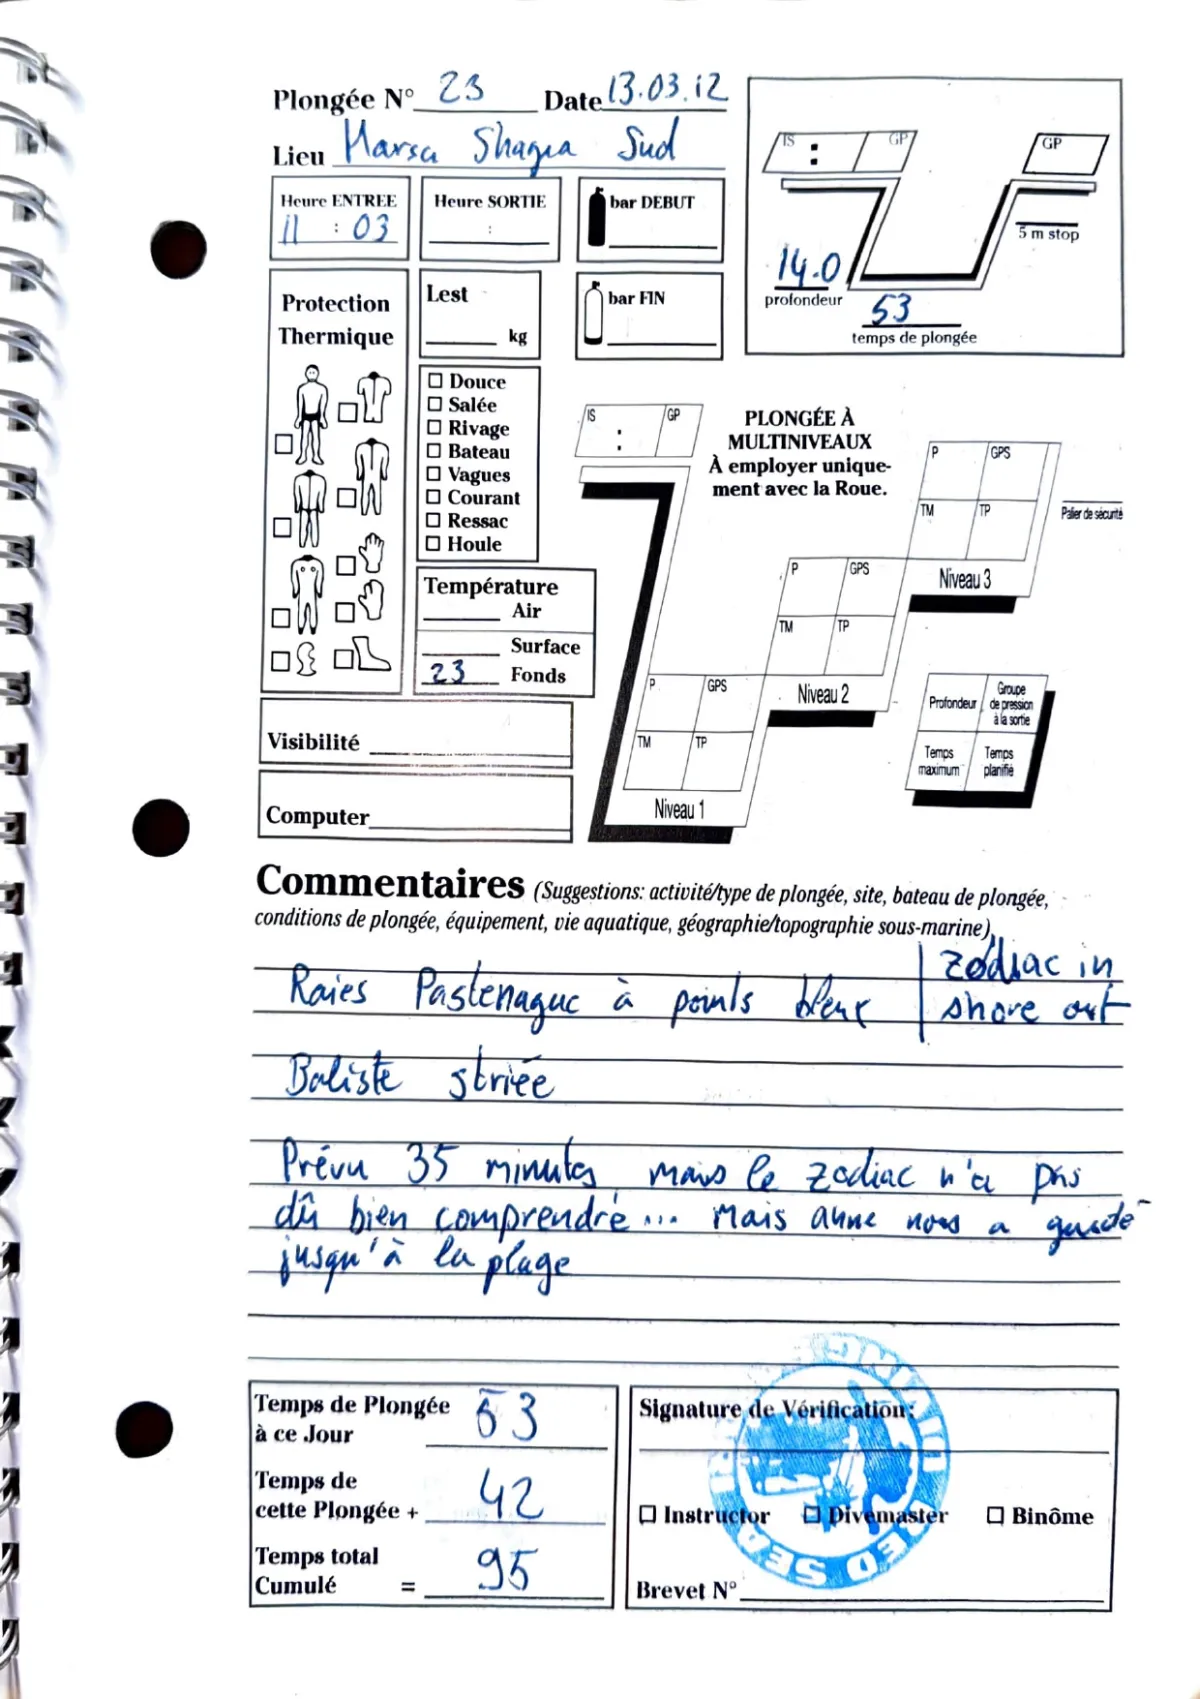 Plongée N° 23 Date 13.03.12
Lieu Marsa Shagra Sud
Heure ENTREE
11 : 03
Heure SORTIE
:
bar DEBUT
IS : GP
GP
5 m stop
14.0
profondeur
53
temps de plongée
Protection
Thermique
Lest
kg
bar FIN
Douce
Salée
Rivage
Bateau
Vagues
Courant
Ressac
Houle
Température
Air
Surface
23 Fonds
Visibilité
Computer
IS : GP
PLONGÉE À
MULTINIVEAUX
À employer unique-
ment avec la Roue.
P GPS
TM TP
Niveau 3
Palier de sécurité
P GPS
TM TP
Niveau 2
P GPS
TM TP
Niveau 1
Profondeur
Groupe
de pression
à la sortie
Temps
maximum
Temps
planifié
Commentaires (Suggestions: activité/type de plongée, site, bateau de plongée,
conditions de plongée, équipement, vie aquatique, géographie/topographie sous-marine)
zodiac in
Raies Pastenague à points bleus shore out
Baliste striée
Prévu 35 minutes mais le zodiac n'a pas
dû bien comprendre... Mais nous a guidé
jusqu'à la plage
Temps de Plongée
à ce Jour 53
Temps de
cette Plongée + 42
Temps total
Cumulé = 95
Signature de Vérification:
Instructor Divemaster Binôme
Brevet N°
RED SEA